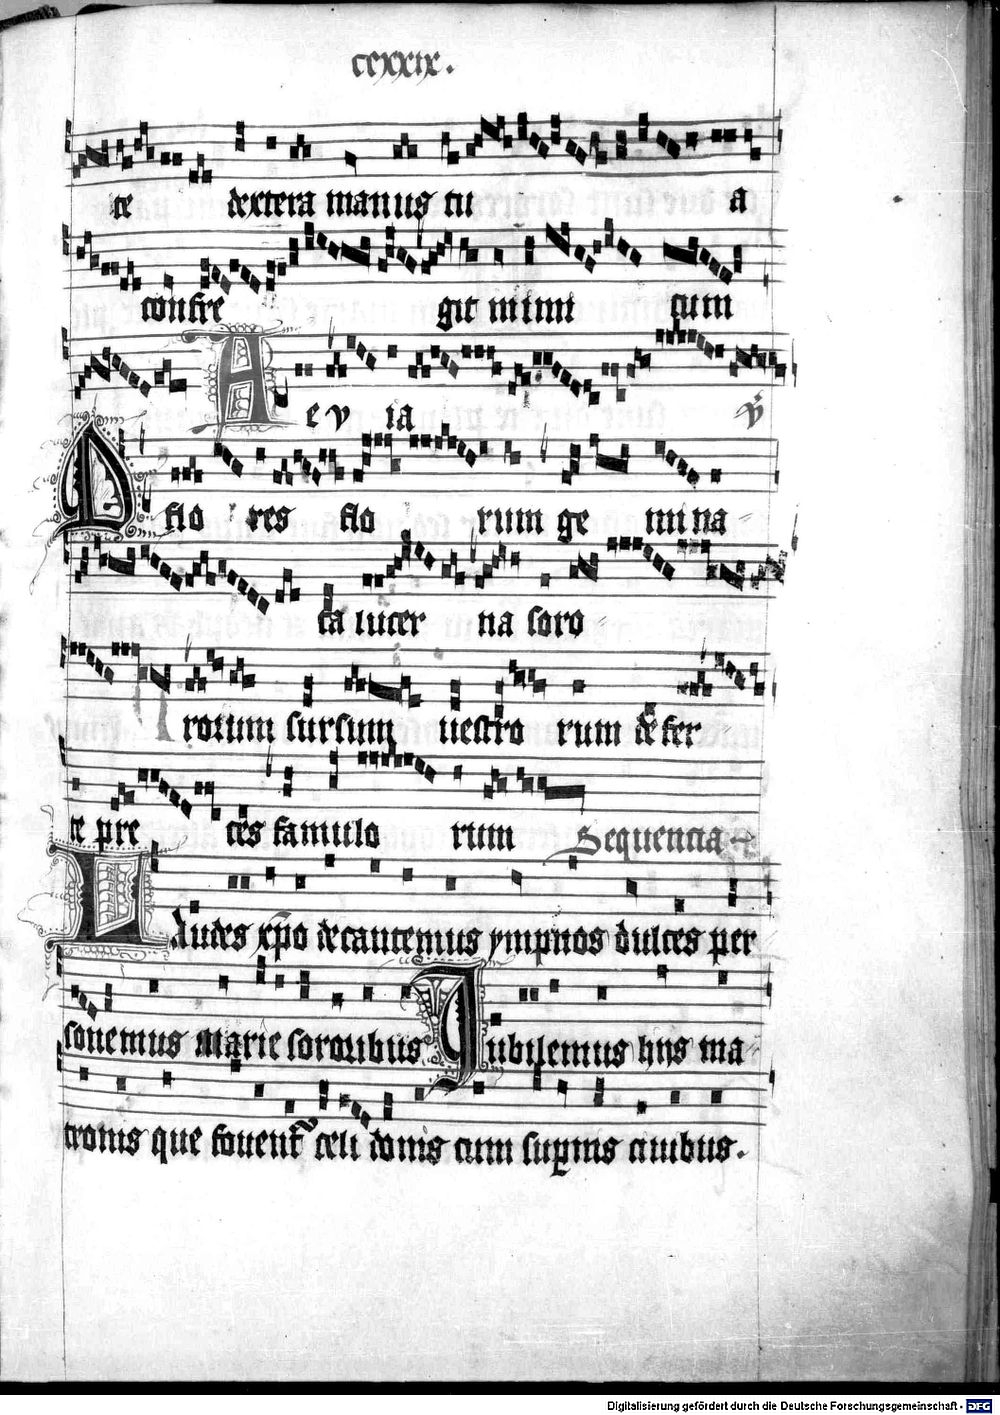 ccxxix.
te dextera manus tu a
confre git inimi cum
A e v ia v̇
O flo res flo rum ge mi na-
ta lucer na soro-
rorum sursum uestro rum defer
te pre ces famulo rum Sequencia
Laudes xpo decantemus ympnos dulces per
sonemus marie sororibus Iubilemus hijs ma-
tronis que fouent celi donis cum supernis ciuibus.
Digitalisierung gefördert durch die Deutsche Forschungsgemeinschaft - DFG